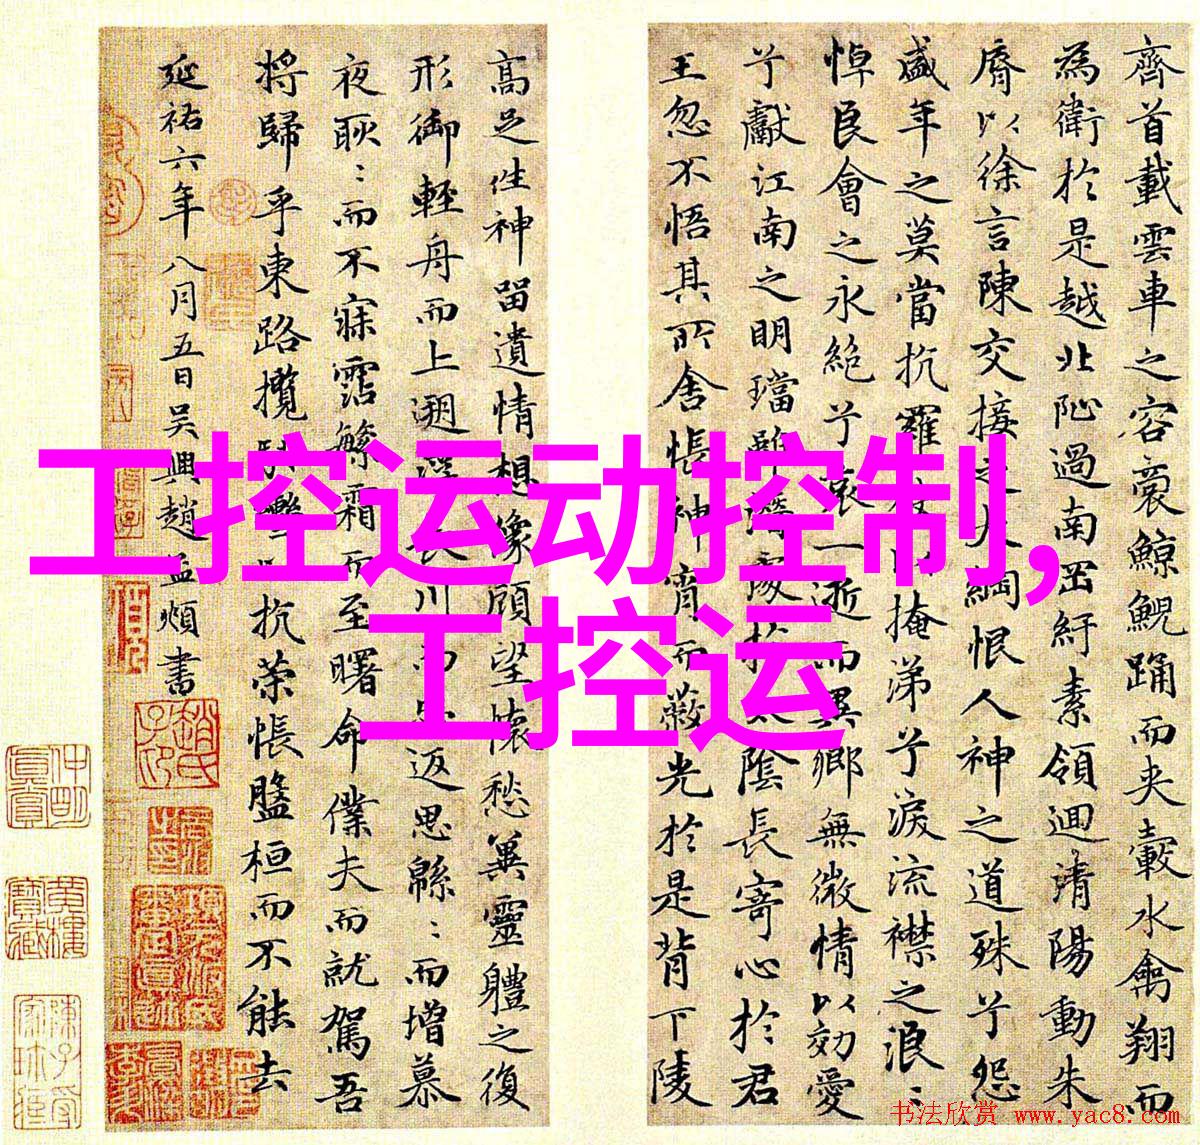 齊首載雲車之容裔鯨鯢踊而夾轂水禽翔而
為衛於是越北沚過南岡紆素領迴清陽動朱
脣以徐言陳交接之大綱恨人神之道殊兮怨
盛年之莫當抗羅袂以掩涕兮淚流襟之浪〻
悼良會之永絕兮哀一逝而異鄉無微情以効愛
兮獻江南之明璫雖潛處於太陰長寄心於君
王忽不悟其所舍悵神宵而蔽光於是背下陵
高足往神留遺情想像顧望懷愁冀靈軆之復
形御輕舟而上遡浮長川而忘返思緜〻而增慕
夜耿〻而不寐霑繁霜而至曙命僕夫而就駕吾
將歸乎東路攬騑轡以抗策悵盤桓而不能去
延祐六年八月五日吳興趙孟頫書
工控运动控制,
工控运
书法欣赏 www.yac8.com